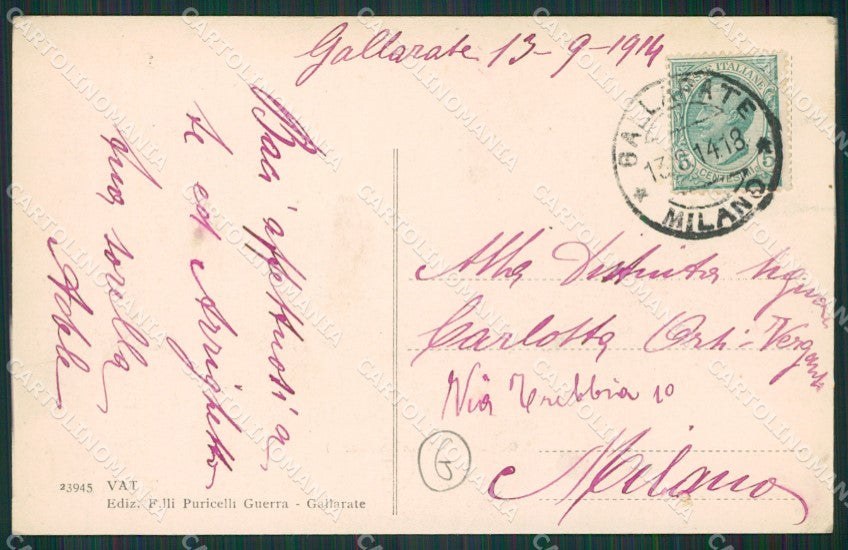 Gallarate 13-9-1914
Baci affettuosi a
te ed Arrighetto
tua sorella
Adele
POSTE ITALIANE
CENTESIMI
5
GALLARATE
MILANO
Alla Distinta Signora
Carlotta Orsi-Vergante
Via Trebbia 10
Milano
23945 VAT
Ediz. F.lli Puricelli Guerra - Gallarate
CARTOLINOMANIA